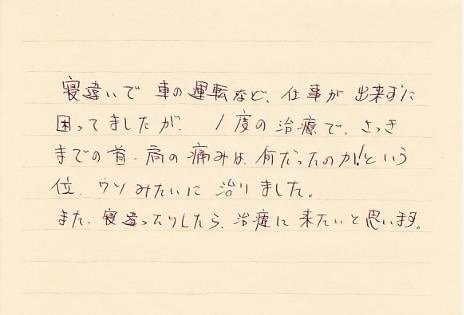 寝違いで 車の運転など、仕事が 出来ずに
困ってましたが、1度の治療で、さっき
までの首・肩の痛みは、何だったのか!という
位、ウソみたいに 治りました。
また、寝違ったりしたら、治療に来たいと思います。